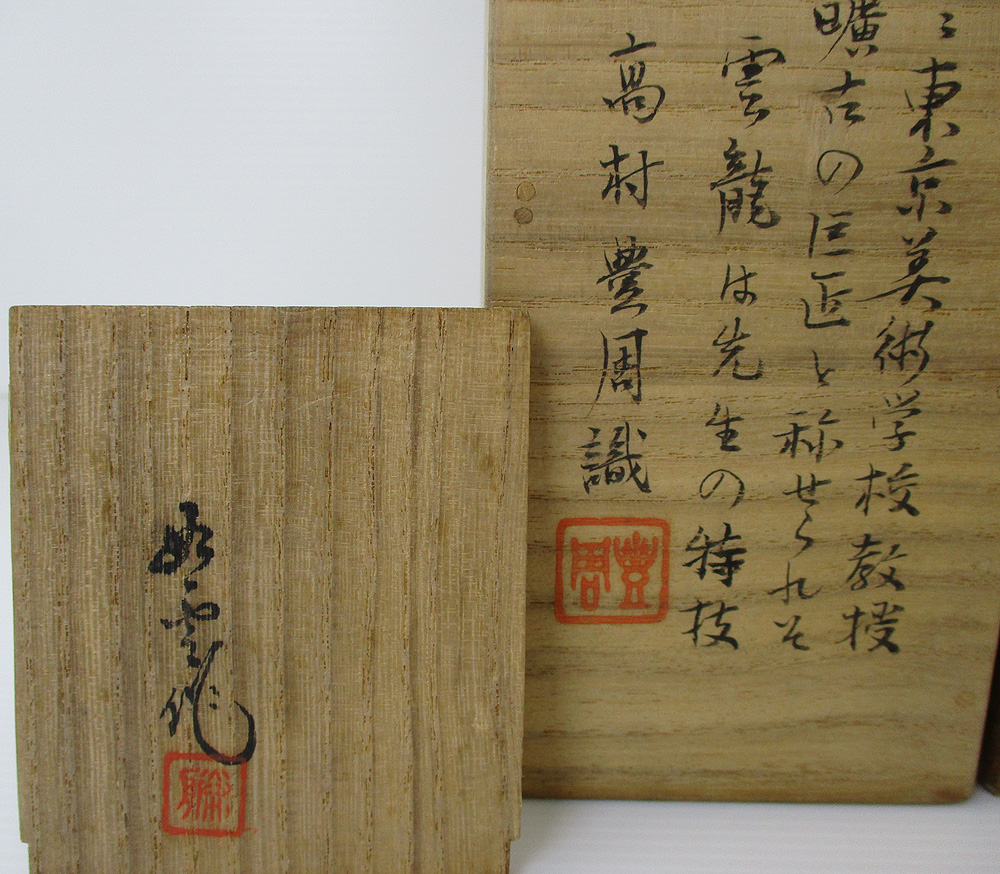 東京美術学校教授
曠古の巨匠と称せられそ
雲龍は先生の特技
高村豊周識
豊周
如雲作